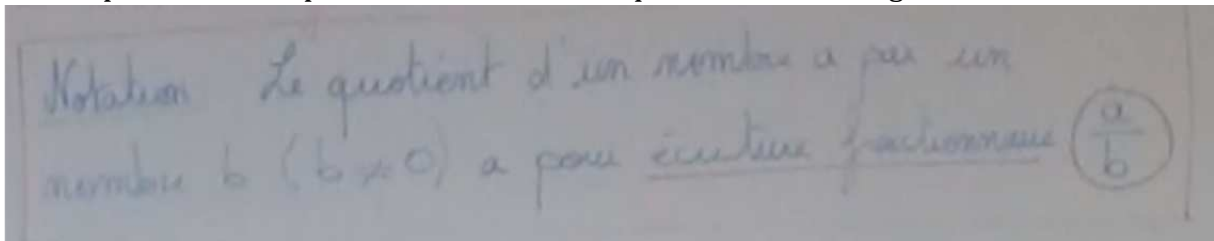 Notation Le quotient d'un nombre a par un
nombre b (b ≠ 0) a pour écriture fractionnaire a/b